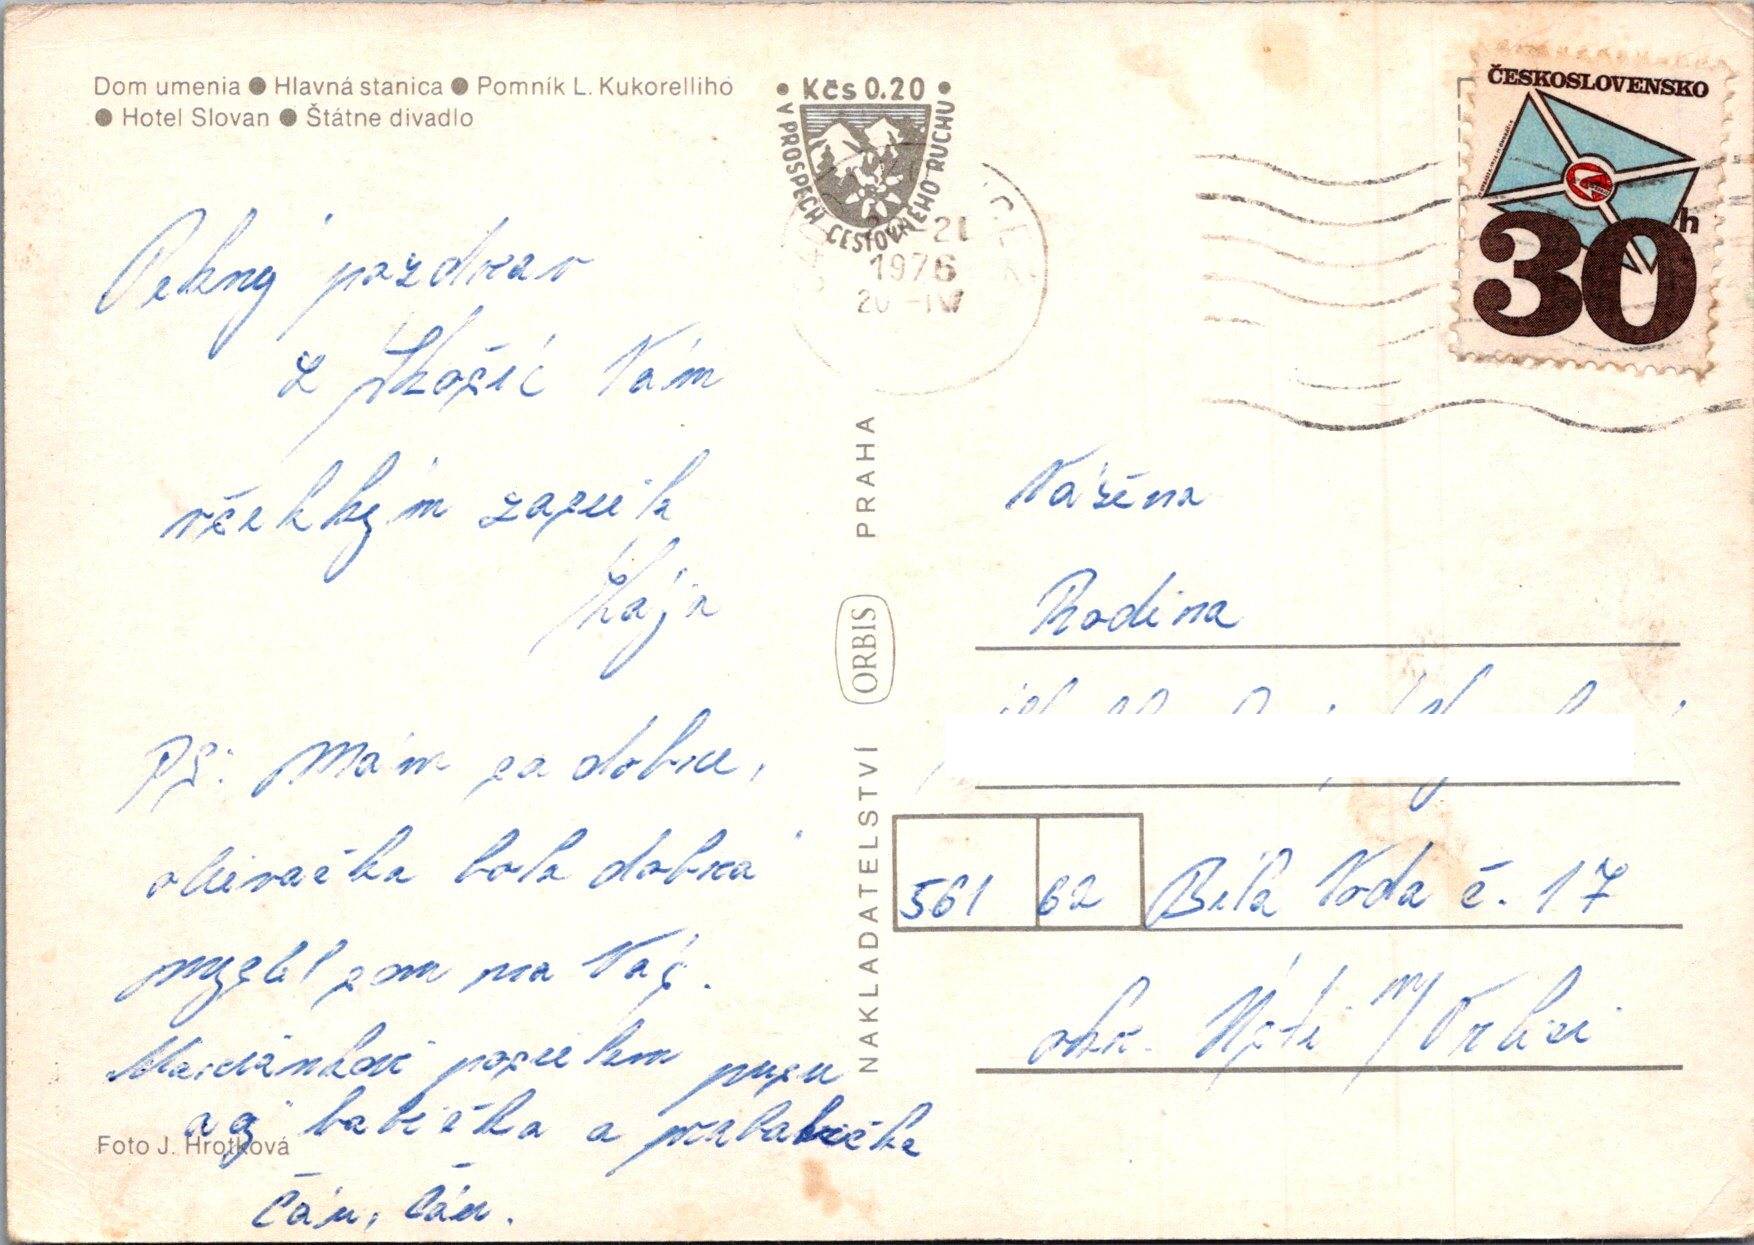 Dom umenia ● Hlavná stanica ● Pomník L. Kukorelliho
● Hotel Slovan ● Štátne divadlo
• Kčs 0.20 •
V PROSPECH CESTOVNÉHO RUCHU
ČESKOSLOVENSKO
30h
21
1976
20
Pekný pozdrav
z Košíc Vám
všetkým zasiela
Kája
PS: Mám sa dobre,
oslievačka bola dobrá
myslel som na Vás.
posielam pusu
aj babička a prababička
Čáu, čáu.
Foto J. Hrotková
NAKLADATELSTVÍ ORBIS PRAHA
Vážená
Rodina
561 62 Bílá Voda č. 17
okr. Ústí n/Orlicí